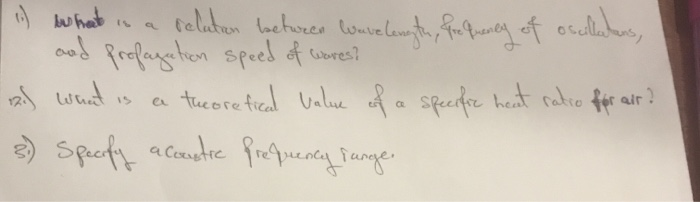 1.) What is a relation between wavelength, frequency of oscillations,
and propagation speed of waves?
2.) What is a theoretical value of a specific heat ratio for air?
3.) Specify acoustic frequency range.